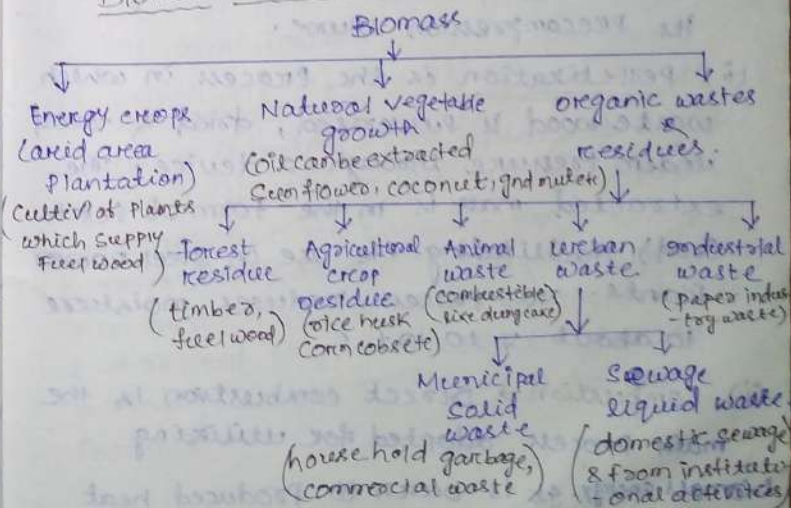 Biomass
Energy crops
(arid area
Plantation)
(Cultivⁿ of Plants
which supply
Fuel wood)
Natural vegetable
growth
(oil can be extracted
Sunflower, coconut, gndnut etc)
organic wastes
&
residues.
Forest
residue
(timber,
fuel wood)
Agricultural
crop
residue
(rice husk
corn cobs etc)
Animal
waste
(combustible
like dung cake)
urban
waste
Industrial
waste
(paper indus
try waste)
Municipal
Solid
waste
(household garbage,
commercial waste)
Sewage
liquid waste.
(domestic sewage
& from institati
onal activities)